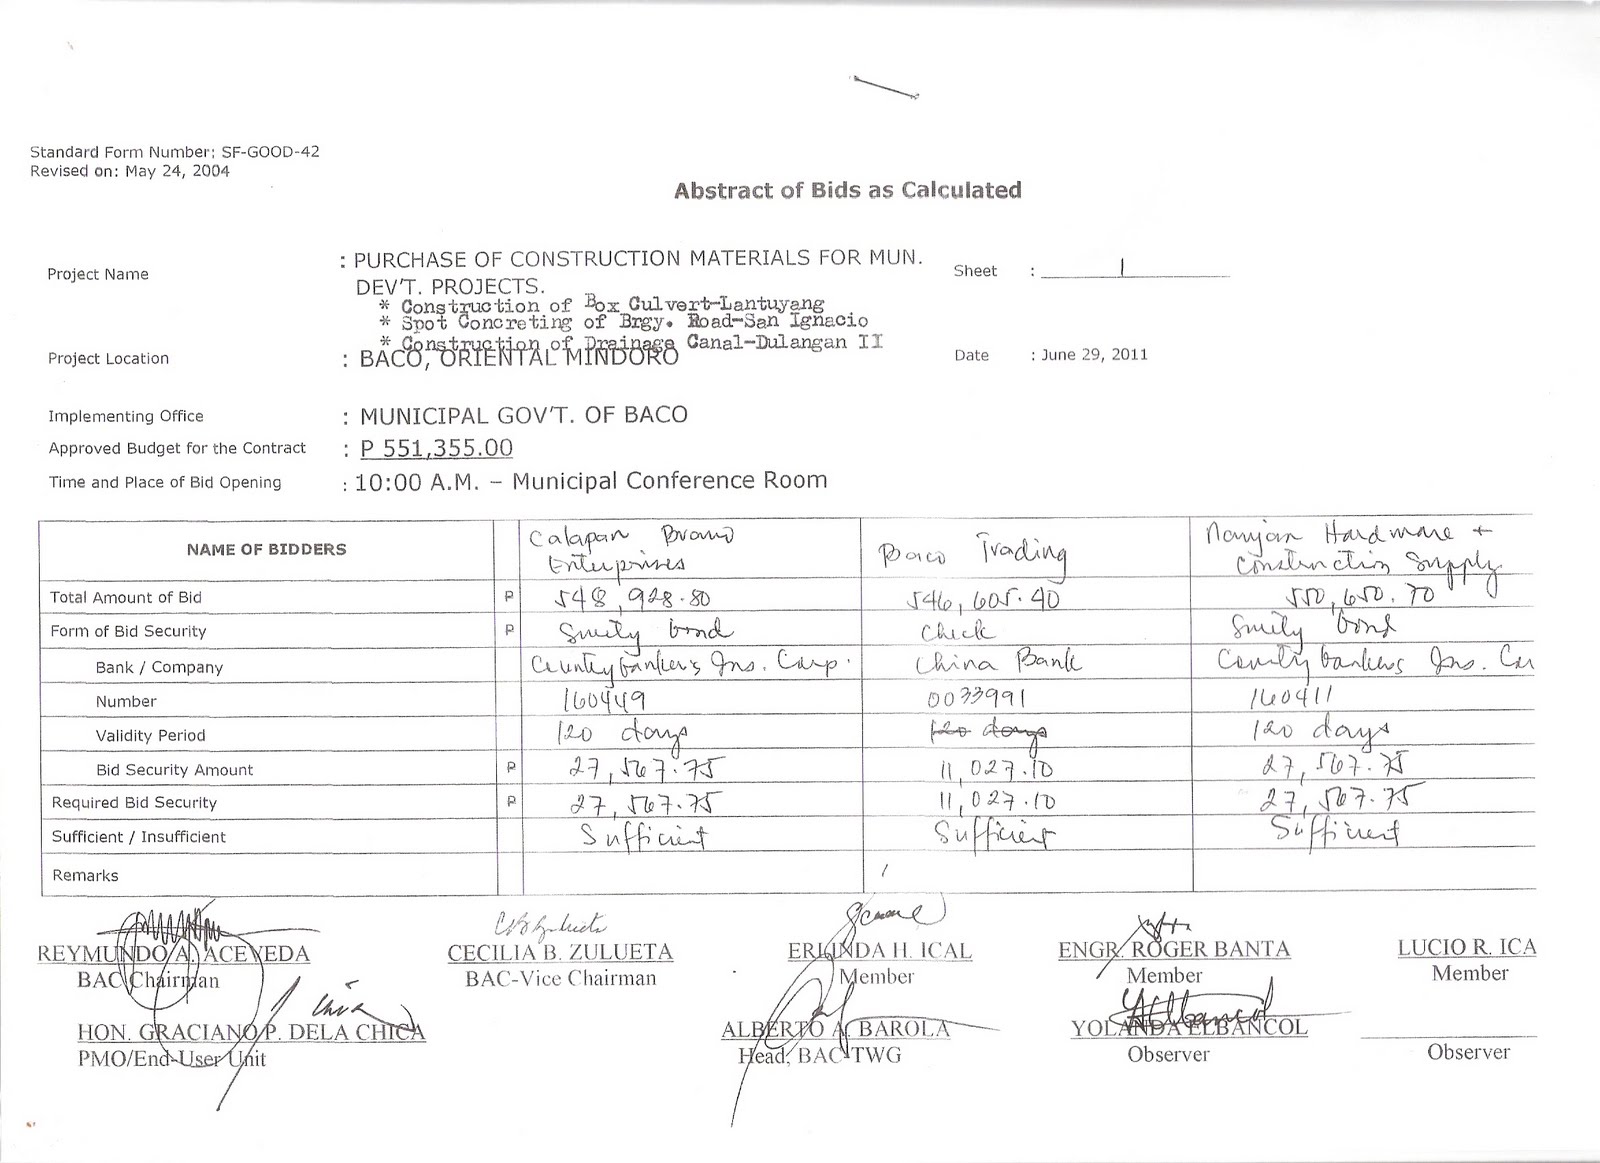 Standard Form Number: SF-GOOD-42
Revised on: May 24, 2004
Abstract of Bids as Calculated
Project Name : PURCHASE OF CONSTRUCTION MATERIALS FOR MUN. Sheet : 1
DEV'T. PROJECTS.
* Construction of Box Culvert-Lantuyang
* Spot Concreting of Brgy. Road-San Ignacio
* Construction of Drainage Canal-Dulangan II
Project Location : BACO, ORIENTAL MINDORO Date : June 29, 2011
Implementing Office : MUNICIPAL GOV'T. OF BACO
Approved Budget for the Contract : P 551,355.00
Time and Place of Bid Opening : 10:00 A.M. – Municipal Conference Room
NAME OF BIDDERS Calapan Bravo Enterprises Baco Trading Naujan Hardware + Construction Supply
Total Amount of Bid P 548,928.80 546,605.40 550,650.70
Form of Bid Security P Surety bond Check Surety bond
Bank / Company Country bankers Ins. Corp. China Bank Country bankers Ins. Co
Number 160449 0033991 160411
Validity Period 120 days 120 days 120 days
Bid Security Amount P 27,567.75 11,027.10 27,567.75
Required Bid Security P 27,567.75 11,027.10 27,567.75
Sufficient / Insufficient Sufficient Sufficient Sufficient
Remarks
REYMUNDO A. ACEVEDA CECILIA B. ZULUETA ERLINDA H. ICAL ENGR. ROGER BANTA LUCIO R. ICA
BAC Chairman BAC-Vice Chairman Member Member Member
HON. GRACIANO P. DELA CHICA ALBERTO A. BAROLA YOLANDA ELBANCOL
PMO/End-User Unit Head, BAC-TWG Observer Observer